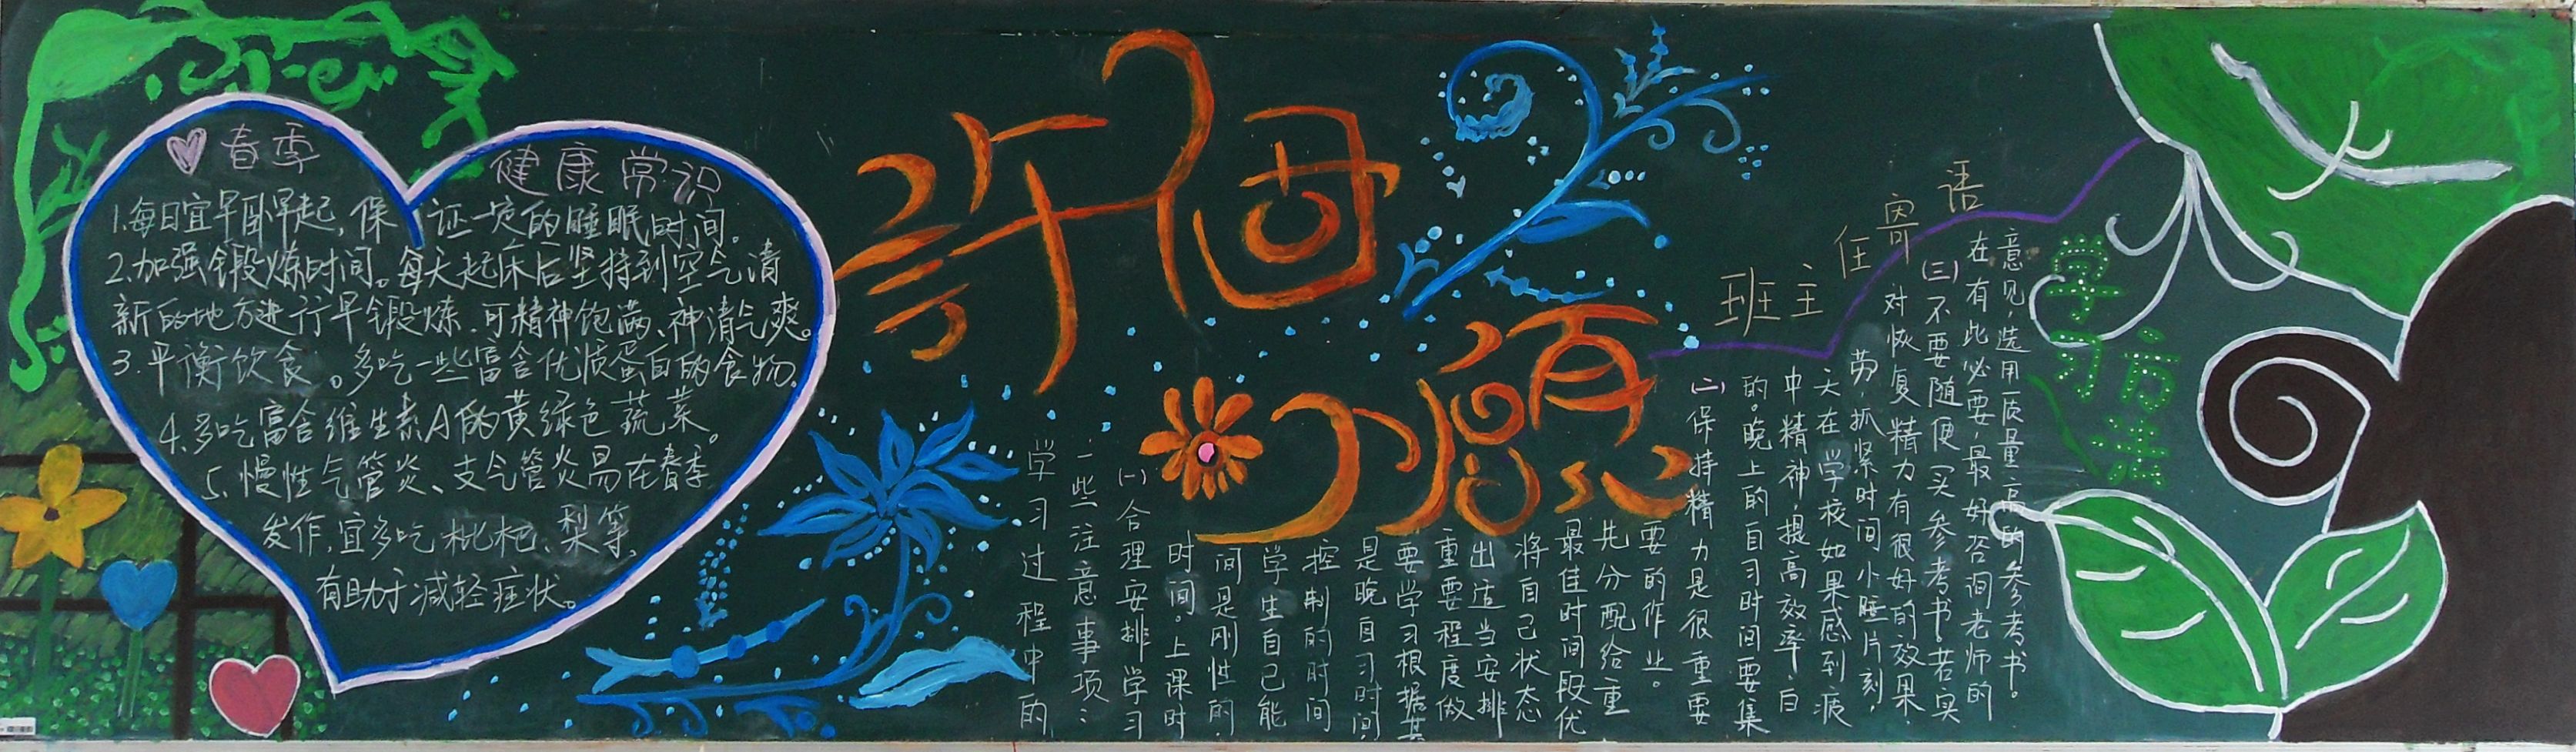 春季 健康常识
1.每日宜早卧早起,保证一定的睡眠时间。
2.加强锻炼时间。每天起床后坚持到空气清
新的地方进行早锻炼.可精神饱满、神清气爽。
3.平衡饮食。多吃一些富含优质蛋白的食物.
4.多吃富含维生素A的黄绿色蔬菜。
5.慢性气管炎、支气管炎易在春季
发作,宜多吃枇杷、梨等,
有助于减轻症状。
許個
心願
班主任寄语
学习过程中的
一些注意事项:
(一)合理安排学习
时间。上课时
间是刚性的,
学生自己能
控制的时间
是晚自习时间,
要学习根据其
重要程度做
出适当安排
将自己状态
最佳时间段优
先分配给重
要的作业。
(二)保持精力是很重要
的。晚上的自习时间要集
中精神,提高效率,白
天在学校如果感到疲
劳,抓紧时间小睡片刻,
对恢复精力有很好的效果.
(三)不要随便买参考书。若实
在有此必要,最好咨询老师的
意见,选用质量高的参考书。
学习方法